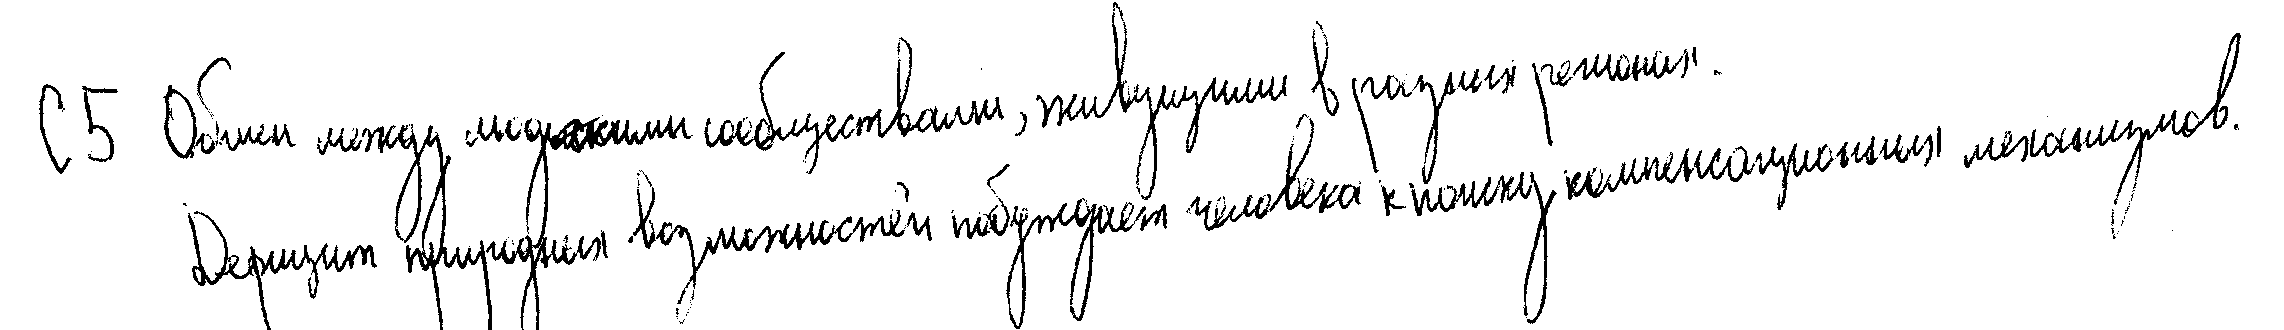 С5 Обмен между людскими сообществами, живущими в разных регионах.
Дефицит природных возможностей побуждает человека к поиску компенсационных механизмов.